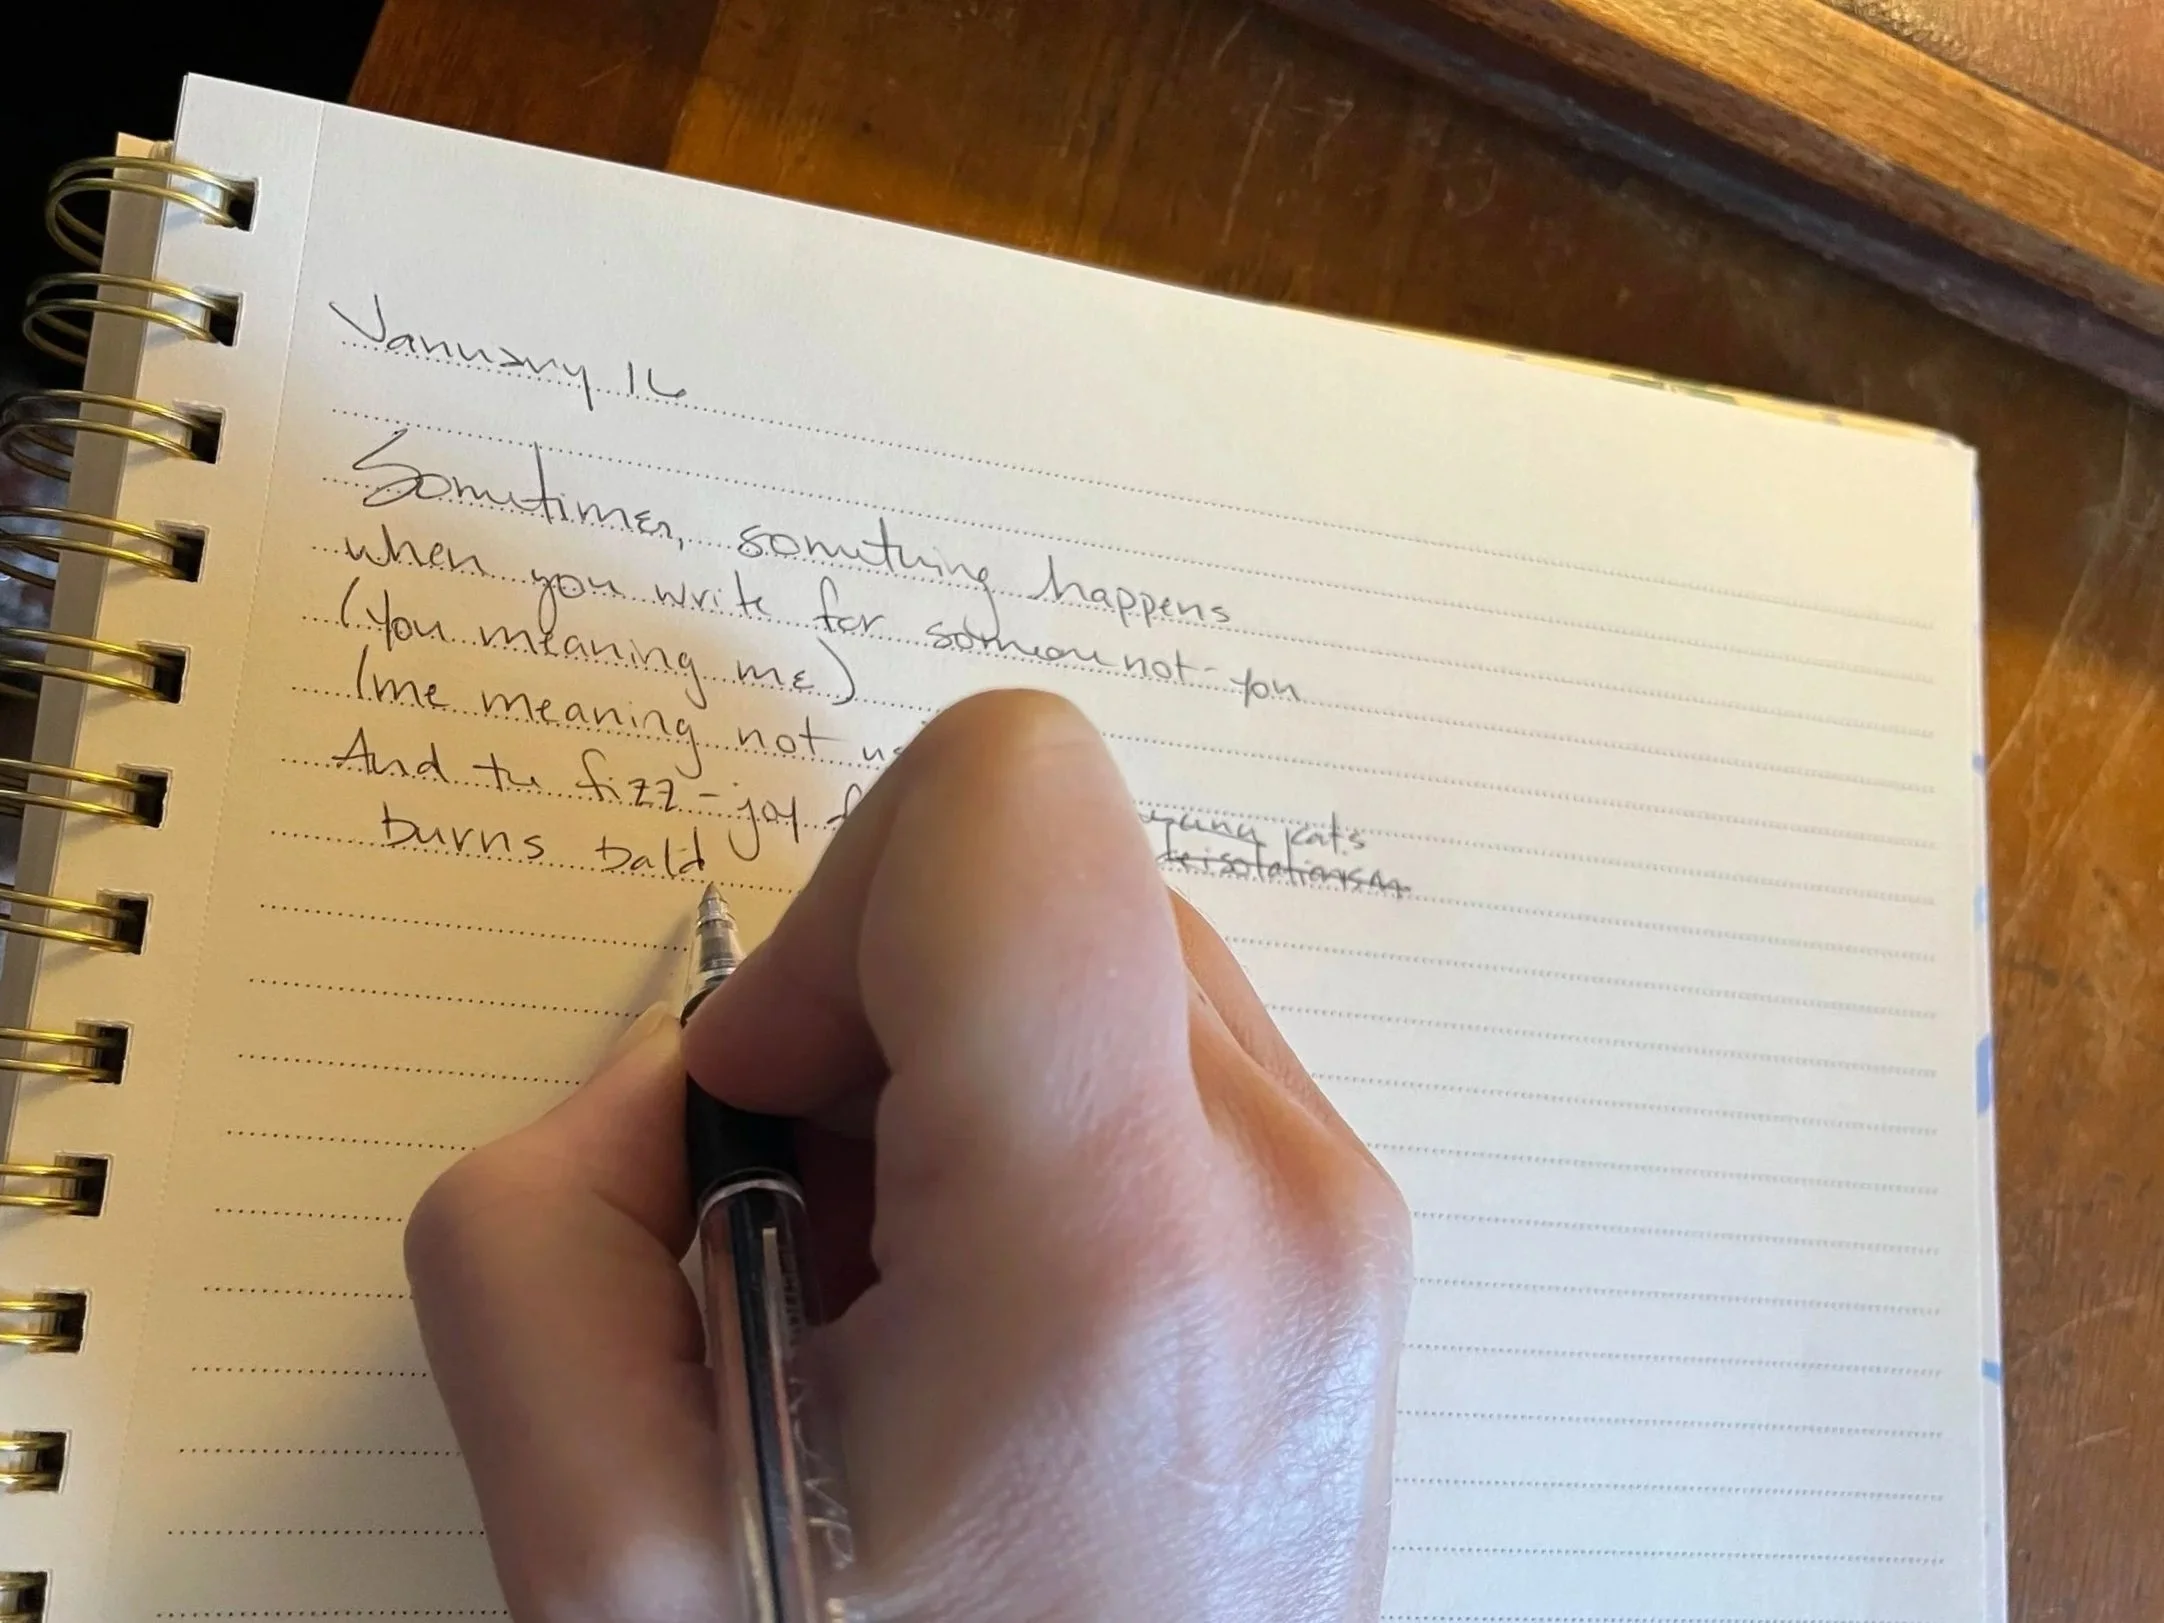 January 16
Sometimes, something happens
when you write for someone not-you
(you meaning me)
(me meaning not us
And the fizz-joy f
young kats
burns bald
deisolationism